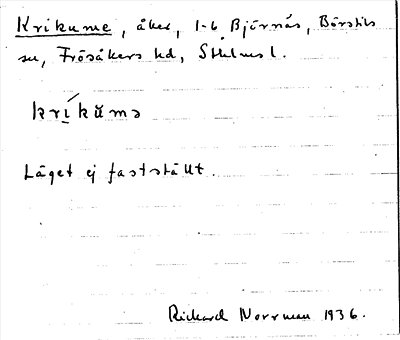 Krikume, åker, 1-6 Björnäs, Börstils
sn, Frösåkers hd, Sthlms l.
kríkŭmə
Läget ej fastställt.
Rickard Norrman 1936.